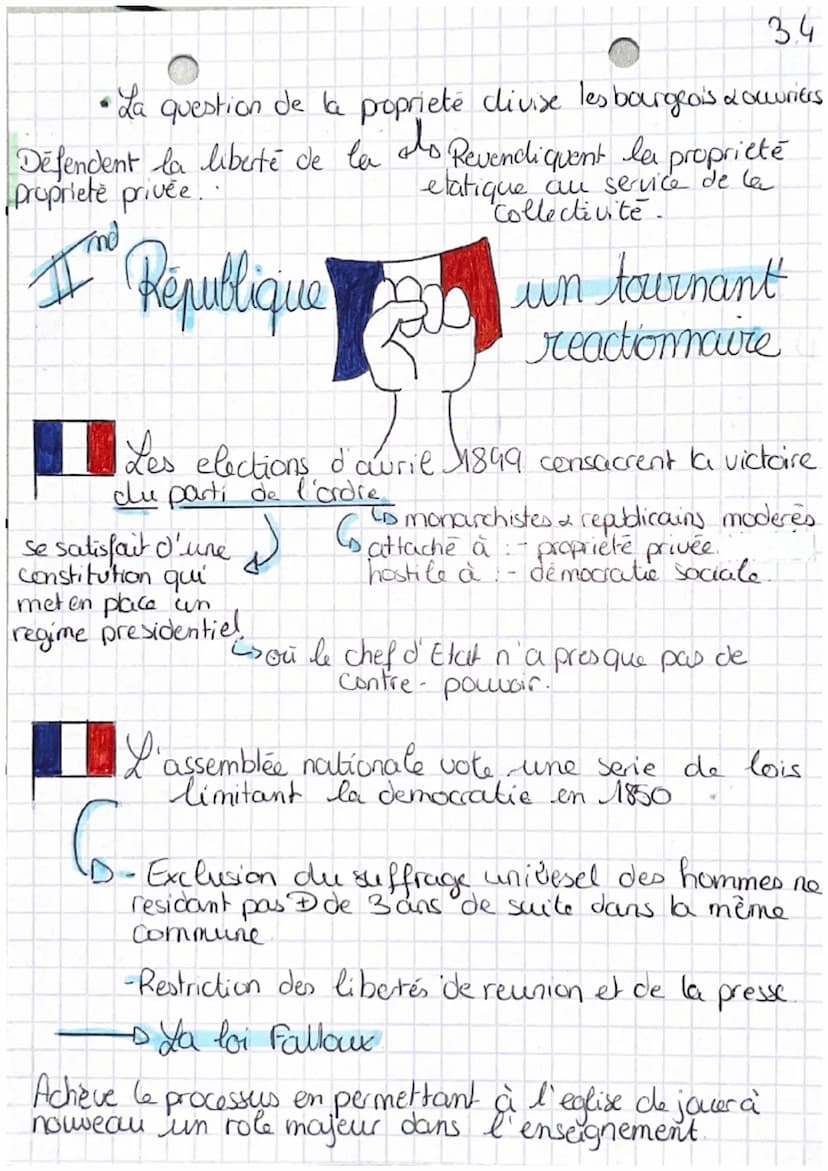 3.4
• La question de la proprieté divise les bourgeois & ouvriers
Défendent la liberté de la
proprieté privée.
Revendiquent la proprieté
etatique au service de la
collectivité.
IInd République
un tournant
reactionnaire
Les elections d'avril 1849 consacrent la victoire
du parti de l'ordre
monarchistes & republicains moderés
attaché à : - proprieté privée.
hostile à : - démocratie sociale.
se satisfait d'une
constitution qui
met en place un
regime presidentiel
où le chef d'Etat n'a presque pas de
contre-pouvoir.
L'assemblée nationale vote une serie de lois
limitant la democratie en 1850
- Exclusion du suffrage univesel des hommes ne
residant pas + de 3 ans de suite dans la même
commune
- Restriction des libertés de reunion et de la presse.
La loi Falloux
Achève le processus en permettant à l'eglise de jouer à
nouveau un role majeur dans l'enseignement.